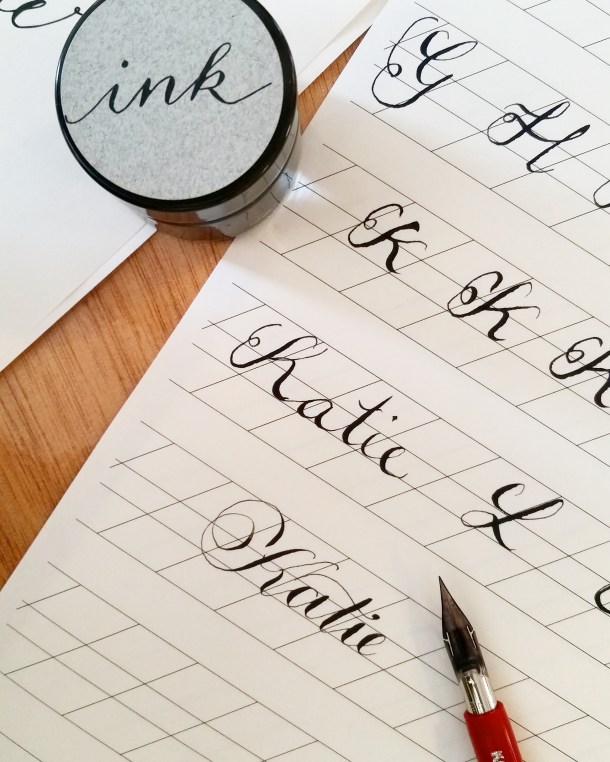 ink
G H
K K K
Katie L
Katie